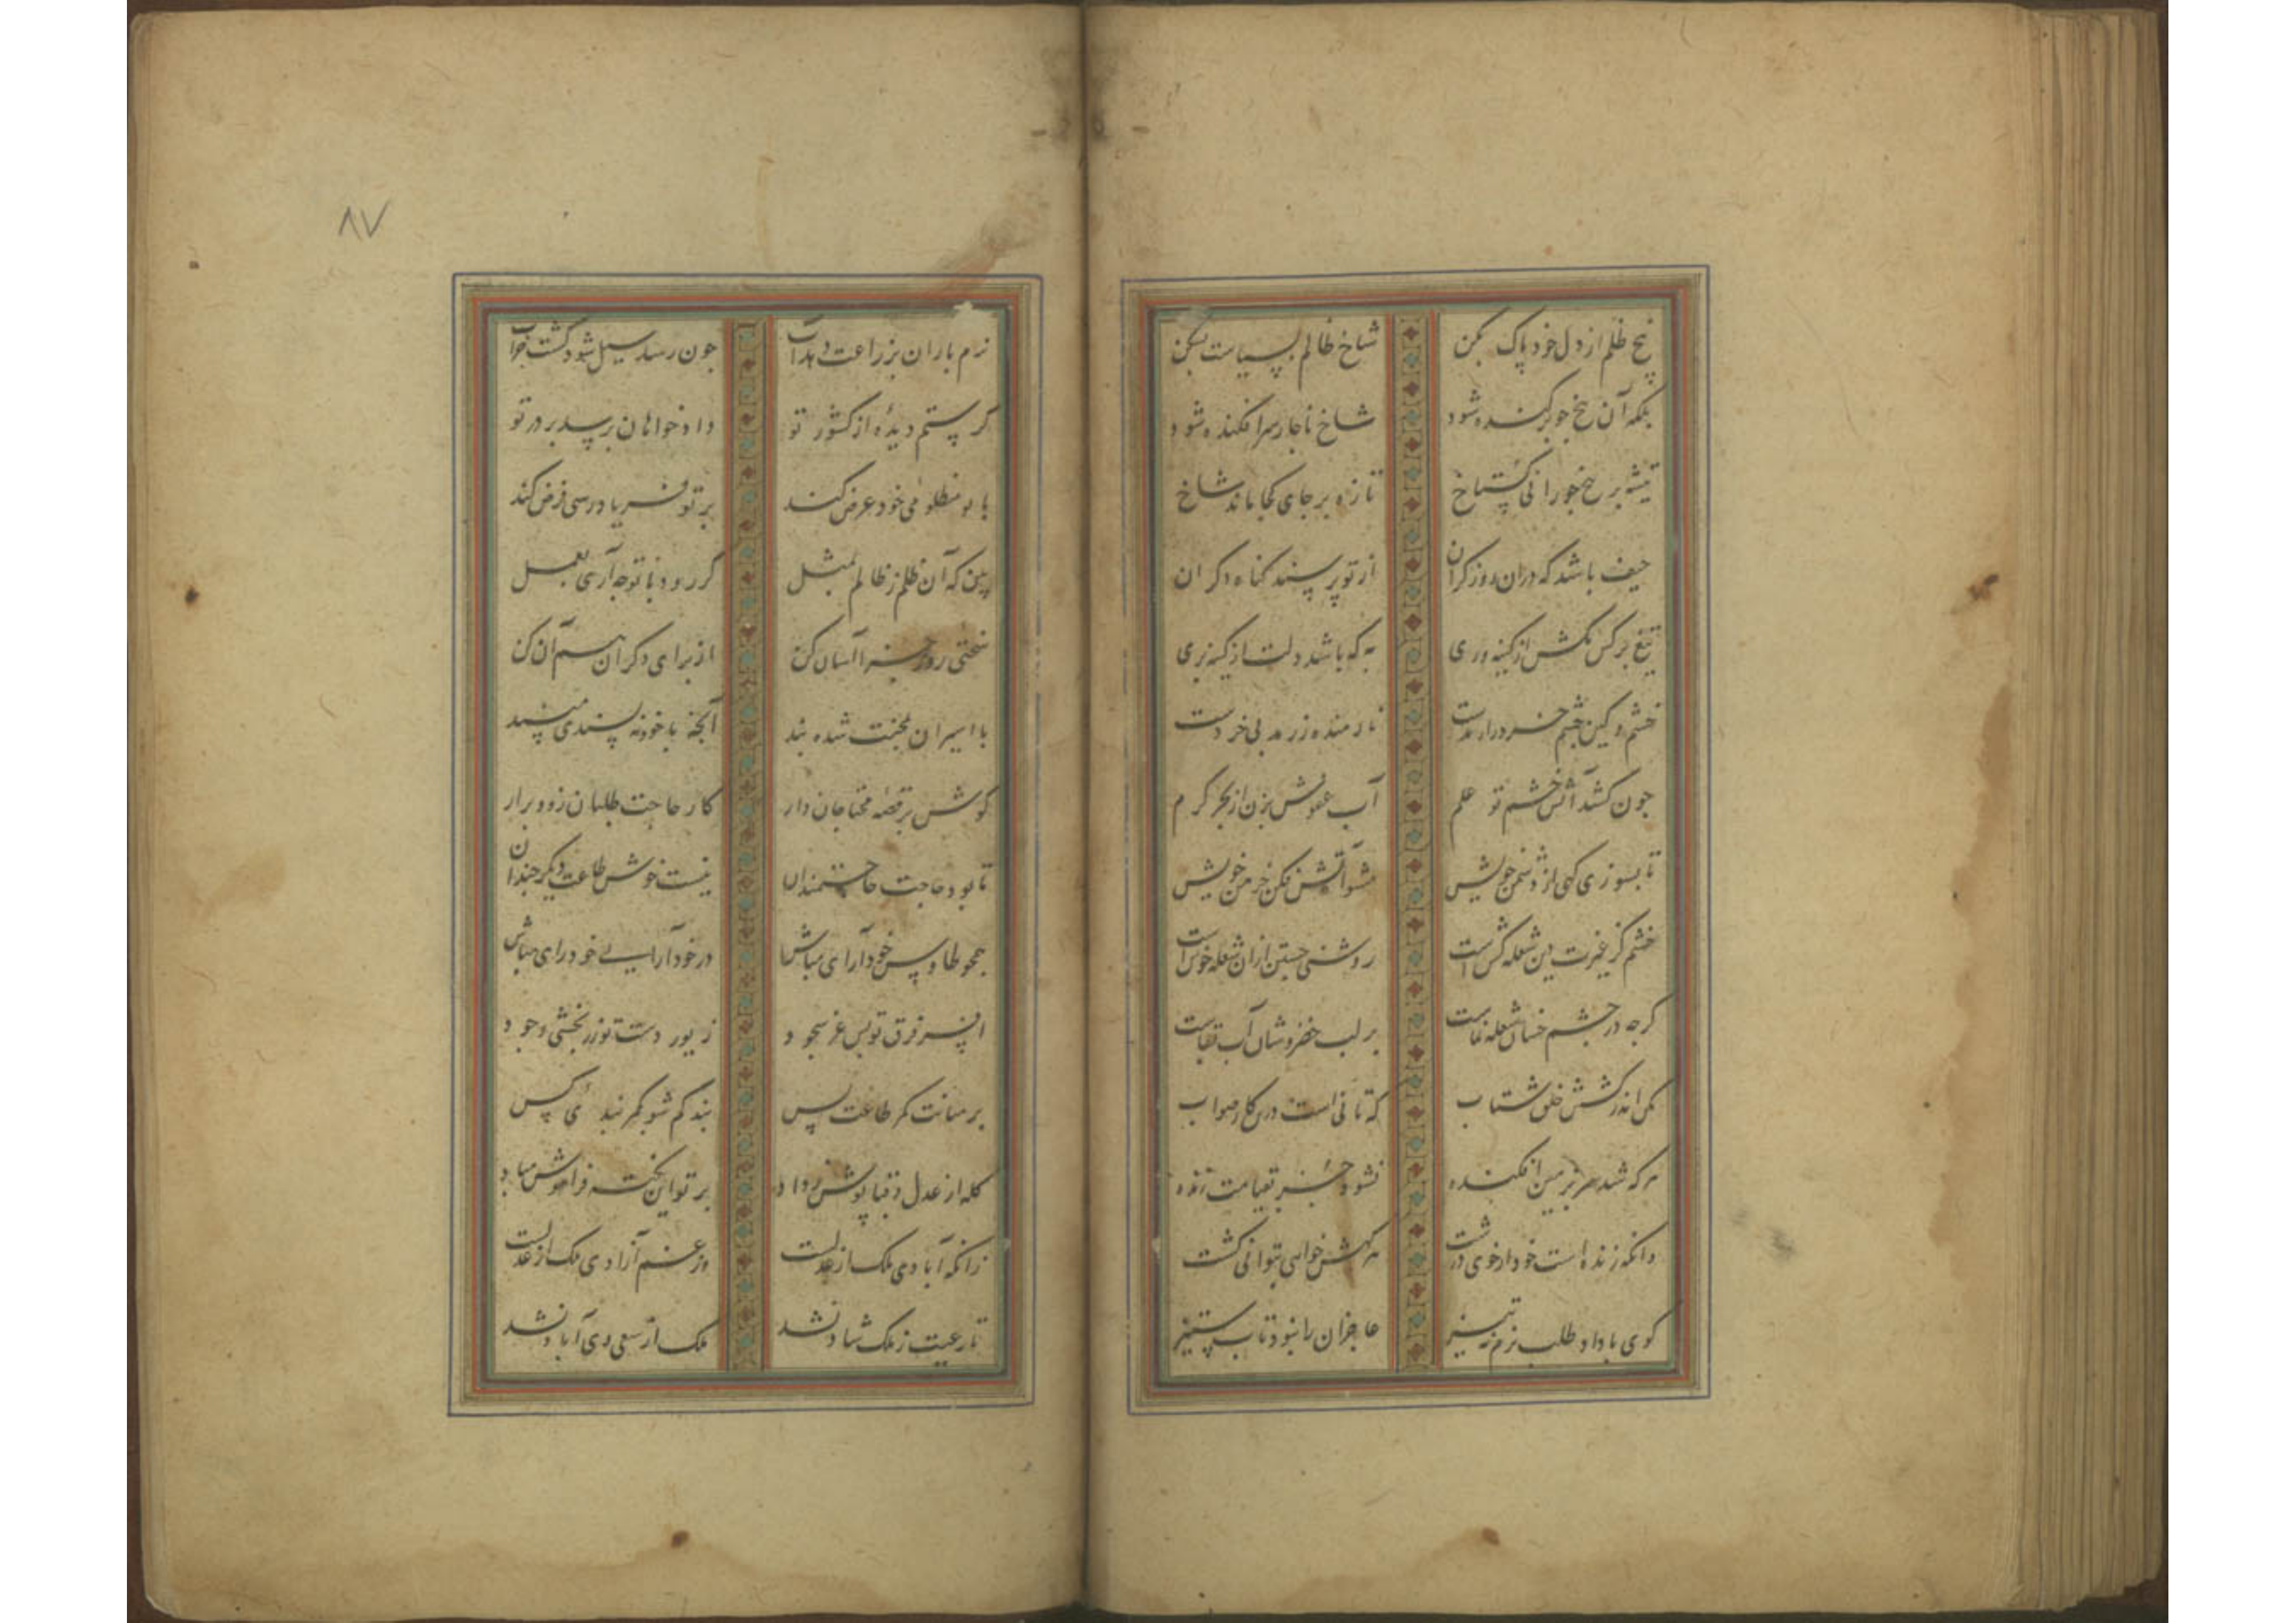 بیخ ظلم از دل خود پاک بکن شاخ ظالم بسیاست بکن
بلکه آن بیخ چو برکنده شود شاخ ناچار سرافکنده شود
تیشه بر بیخ خوری گستاخ تازه بر جای کجا ماند شاخ
حیف باشد که دران روز گران از تو پرسند گناه دگران
تیغ بر کس مکش از کینه وری به که باشد دلت از کینه بری
خشم و کین خشم خرد را
چون کشد آتش خشم تو علم آب عفوش بزن از بحر کرم
تا بسوزی کهی از دشمن خویش مشو آتش فکن خرمن خویش
خشم کز غیرت دین شعله کش است روشنی جستن ازان شعله خوش است
گرچه در چشم خسان شعله نماست بر لب خضروشان آب بقاست
مکن اندر کشش خلق شتاب که تانی است درین کار صواب
هر که شد سر بزمین افکنده نشود جز بقیامت زنده
وانکه زنده است خود از خوی درشت هر گهش خواهی بتوانی کشت
گوی با داد طلب نرم نه تیز عاجزان را نبود تاب ستیز
٨٧
نرم باران بزراعت دهد آب چون رسد سیل شود کشت خراب
گر ستم دیده از کشور تو دادخواهان برسد بر در تو
با تو مظلومی خود عرض کند بر تو فریادرسی فرض کند
بین که آن ظلم ز ظالم بمثل گر رود با تو چه آری بعمل
سختی روز جزا آسان کن از برای دگران هم آن کن
با اسیران محنت شده بند آنچه با خود نه پسندی مپسند
گوش بر قصه محتاجان دار کار حاجت طلبان زود برار
تا بود حاجت حاجتمندان نیست خوش طاعت دیگر چندان
همچو طاوس خودآرای مباش در خودآرایی خودرای مباش
افسر فرق تو بس عز سجود زیور دست تو زربخشی و جود
بر میانت کمر طاعت بس بند کم شو کمر بندی کس
کله از عدل و قبا پوش ز داد بر تو این نکته فراموش مباد
زانکه آبادی ملک از عدلست وز غم آزادی ملک از عدلست
تا رعیت ز ملک شاد نشد ملک از سعی وی آباد نشد